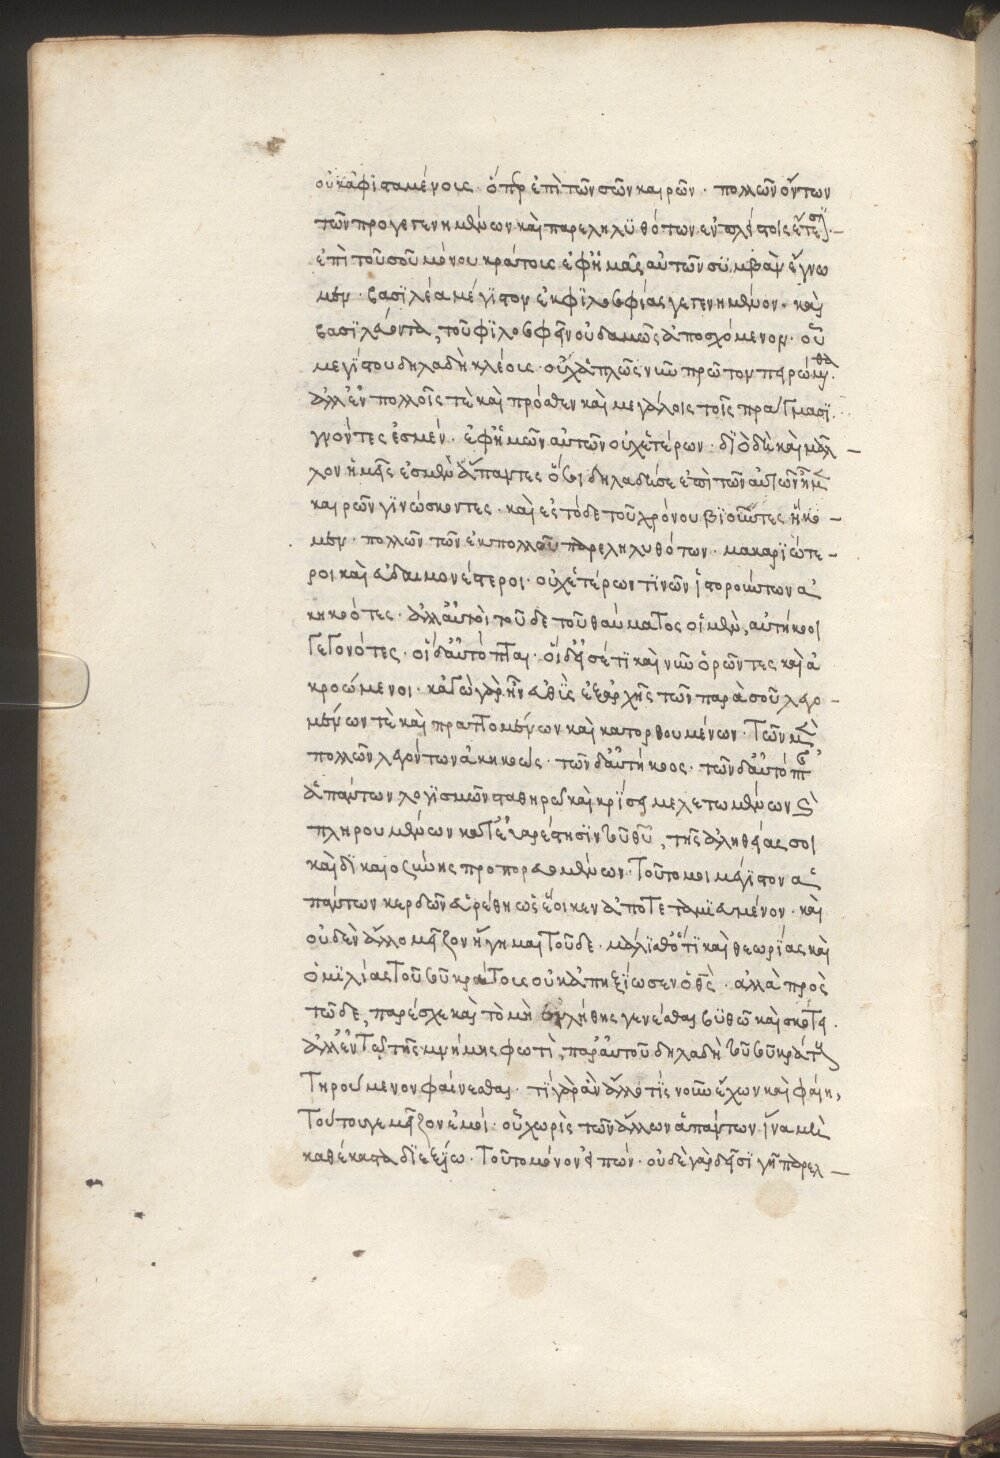 οὐκ ἀφϊσταμένοις ὅπερ ἐπὶ τῶν σῶν καιρῶν · πολλῶν ὄντων
τῶν προγεγενημένων καὶ παρεληλϋθότων ἐν πλείστοις ἔτεσϊ · –
ἐπὶ τοῦ σοῦ μόνου κράτους ἐφ ἡμᾶς αὐτῶν σϋμβὰν ἔγνω
μεν · βασϊλέα μέγϊστον ἐκ φϊλοσοφίας γεγενημένον · καὶ
βασϊλεύοντα, τοῦ φϊλοσοφεῖν οὐδαμῶς ἀποσχόμενον · οὗ
μεγίστου δηλαδὴ κλέους · οὐχ ἁπλῶς νῦν πρῶτον
ἀλλ ἐν πολλοῖς τὲ καὶ πρόσθεν καὶ μεγάλοις τοῖς πράγμασϊ
γνόντες ἐσμέν · ἐφ ἡμῶν αὐτῶν οὐχ ἑτέρων · δϊὸ δὴ καὶ μᾶλ –
λον ἡμεῖς ἐσμὲν ἅπαντες ὅσοι δηλαδή σε ἐπὶ τῶν αὐτῶν ἡμῖν
καιρῶν γϊνώσκοντες · καὶ ἐς τόδε τοῦ χρόνου βϊοῦντες ἥκο –
μεν · πολλῶν τῶν ἐκ πολλοῦ παρεληλυθότων · μακαρϊώτε –
ροι καὶ εὐδαιμονέστεροι · οὐχ ἑτέρων τϊνῶν ἱστορούντων ἀ
κηκοότες · ἀλλ αὐτοὶ τοῦδε τοῦ θαύματος οἱ μὲν, αὐτήκοοι
γεγονότες · οἱ δ αὐτόπται · οἱ δ εἰσέτϊ καὶ νῦν ὁρῶντες καὶ ἀ
κροώμενοι · κἀγὼ γὰρ ἦν εὐθῢς ἐξ ἀρχῆς τῶν παρὰ σοῦ λεγο –
μένων τὲ καὶ πραττομένων καὶ κατορθουμένων · τῶν μὲν
πολλῶν λεγόντων ἀκηκοὼς · τῶν δ αὐτήκοος · τῶν δ αὐτόπτης
ἁπάντων λογϊσμῶν σταθηρῶ καὶ κρίσει μελετωμένων καὶ
πληρουμένων κατ εὐαρέστησϊν τοῦ θεοῦ, τῆς ἀληθείας σοι
καὶ δϊκαιοσύνης προπορευομένων · τοῦτο μοι μέγϊστον ἁ
πάντων κερδῶν εὑρέθη ὡς ἔοικεν ἀπο τεταμϊευμένον · καὶ
οὐδὲν ἄλλο μεῖζον ἥγημαι τοῦδε · μάλϊσθ ὅτϊ καὶ θεωρίας καὶ
ὁμϊλίας τοῦ σοῦ κράτους οὐκ ἀπηξίωσεν ὁ θεὸς · ἀλλὰ πρὸς
τῶδε, παρέσχε καὶ τὸ μὴ ἐν λήθης γενέσθαι βϋθῶ καὶ σκότει ·
ἀλλ ἐν τῶ τῆς μνήμης φωτὶ, παρ αὐτοῦ δηλαδὴ τοῦ σοῦ κράτους
τηρούμενον φαίνεσθαι · τί γὰρ ἂν ἄλλό τϊς νοῦν ἔχων καὶ φαίη,
τούτου γε μεῖζον ἐμοί · οὗ χωρὶς τῶν ἄλλων ἁπάντων ἵνα μὴ
καθέκαστα δϊεξίω · τοῦτο μόνον εἰπών · οὐδὲ γὰρ δεῖ σϊγῆ παρελ –